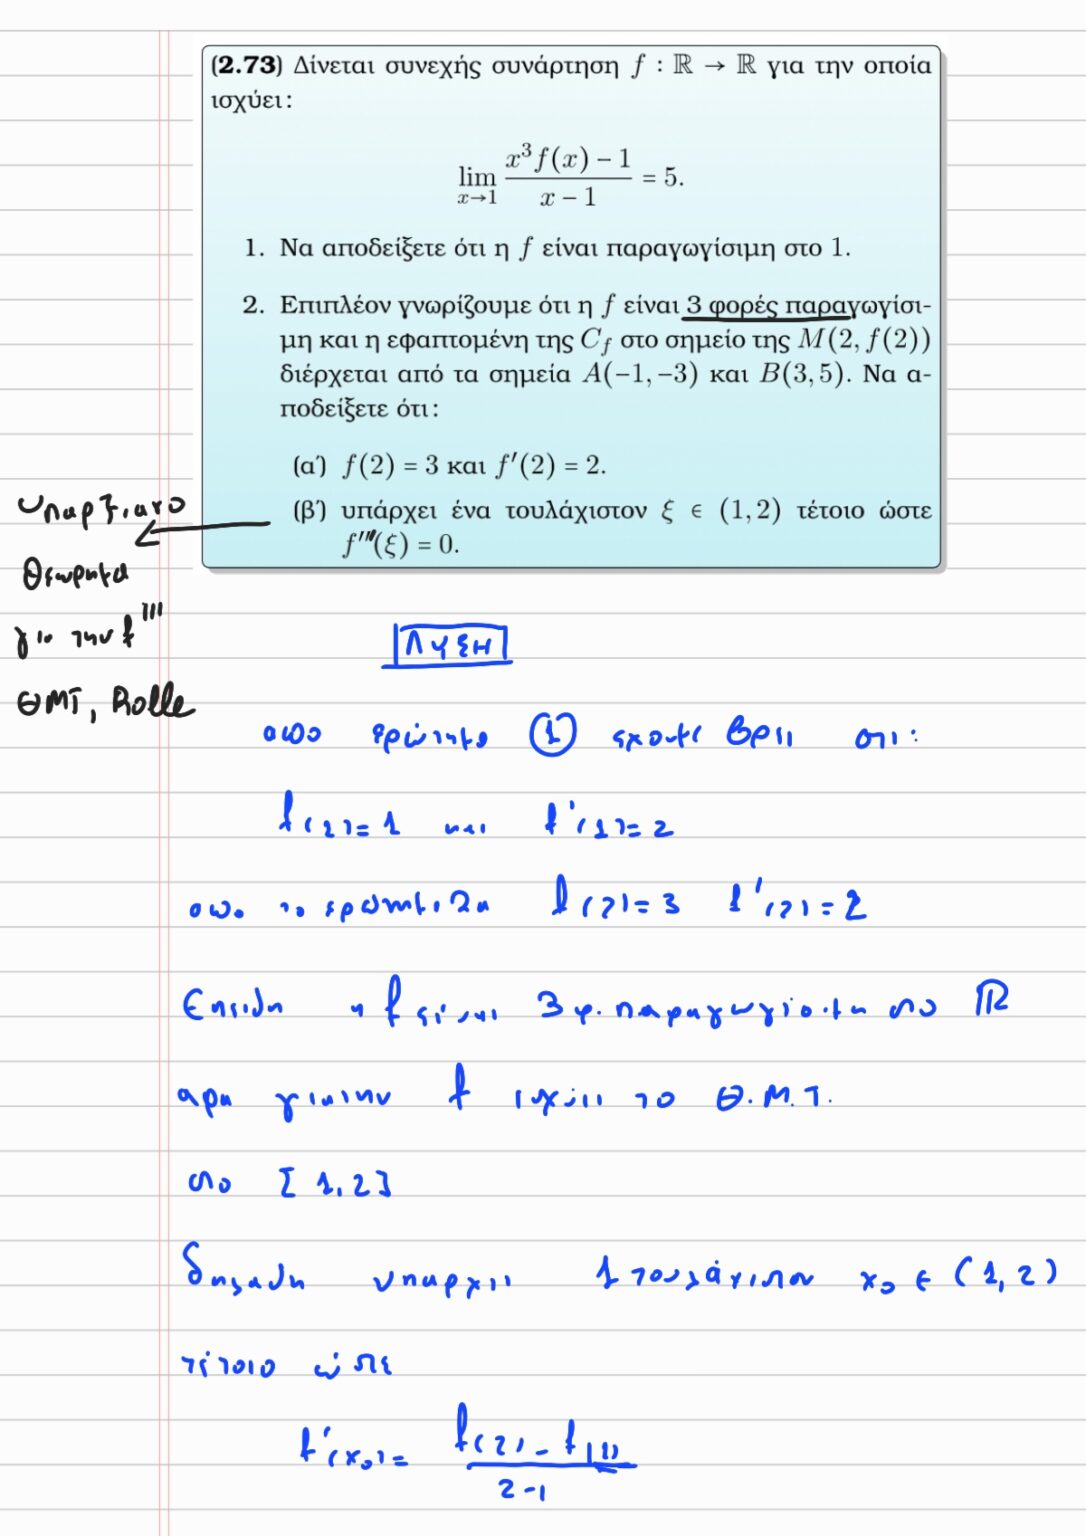 (2.73) Δίνεται συνεχής συνάρτηση f : ℝ → ℝ για την οποία
ισχύει:
lim x→1 (x³f(x) − 1)/(x − 1) = 5.
1. Να αποδείξετε ότι η f είναι παραγωγίσιμη στο 1.
2. Επιπλέον γνωρίζουμε ότι η f είναι 3 φορές παραγωγίσι-
μη και η εφαπτομένη της C_f στο σημείο της M(2, f(2))
διέρχεται από τα σημεία A(−1, −3) και B(3, 5). Να α-
ποδείξετε ότι:
(α') f(2) = 3 και f'(2) = 2.
(β') υπάρχει ένα τουλάχιστον ξ ∈ (1, 2) τέτοιο ώστε
f'''(ξ) = 0.
υπαρξιακο
θεωρημα
για την f'''
ΘΜΤ, Rolle
ΛΥΣΗ
απο ερώτημα ① εχουμε βρει οτι:
f(1)=1 και f'(1)=2
απο το ερώτημα 2α f(2)=3 f'(2)=2
Επειδη η f είναι 3 φ. παραγωγίσιμη στο ℝ
αρα για την f ισχύει το Θ.Μ.Τ.
στο [1,2]
δηλαδη υπαρχει 1 τουλάχιστον x₀ ∈ (1,2)
τέτοιο ώστε
f'(x₀) = (f(2) - f(1))/(2-1)